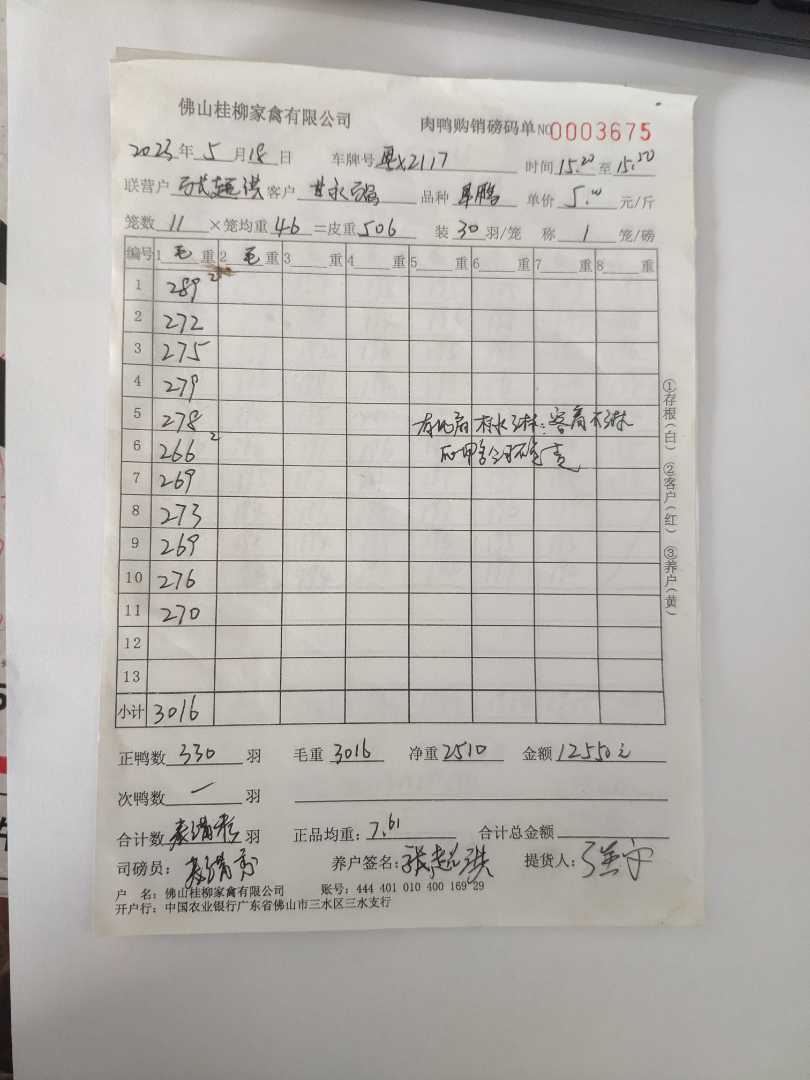 佛山桂柳家禽有限公司 肉鸭购销磅码单 NO 0003675
2023年5月18日 车牌号 粤X2117 时间 15.20 至 15.50
联营户 张超洪 客户 甘永 品种 单价 5.00 元/斤
笼数 11 ×笼均重 46 =皮重 506 装 30 羽/笼 称 1 笼/磅
编号 1 毛 重 2 毛 重 3 重 4 重 5 重 6 重 7 重 8 重
1 289 2
2 272
3 275
4 279
5 278
6 266 2
7 269
8 273
9 269
10 276
11 270
12
13
小计 3016
①存根(白) ②客户(红) ③养户(黄)
正鸭数 330 羽 毛重 3016 净重 2510 金额 12550元
次鸭数 一 羽
合计数 羽 正品均重: 7.61 合计总金额
司磅员: 养户签名: 张超洪 提货人:
户 名: 佛山桂柳家禽有限公司 账号: 444 401 010 400 169 29
开户行: 中国农业银行广东省佛山市三水区三水支行